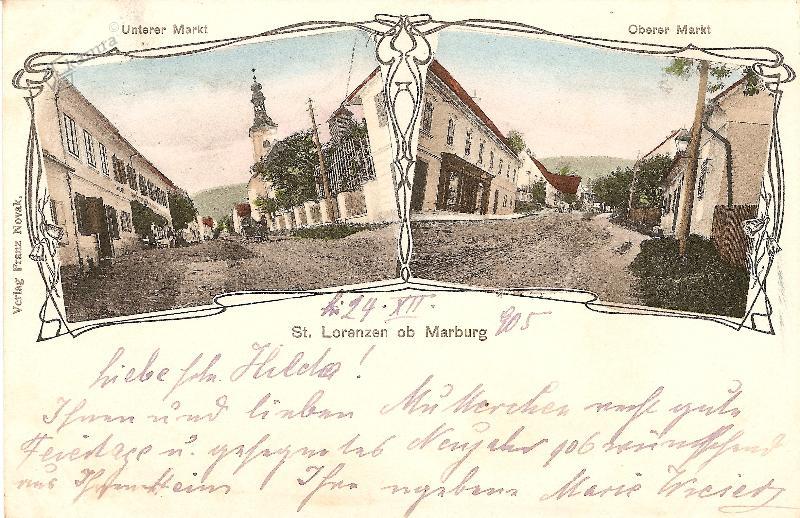 Unterer Markt
Oberer Markt
Verlag Franz Novak.
24. XII. 905
St. Lorenzen ob Marburg
Liebe Frl. Hilda!
Ihnen und lieben Mutterchen recht gute
Feiertage u. gesegnetes Neujahr 906 wünschend
aus
Ihre ergebene Marie